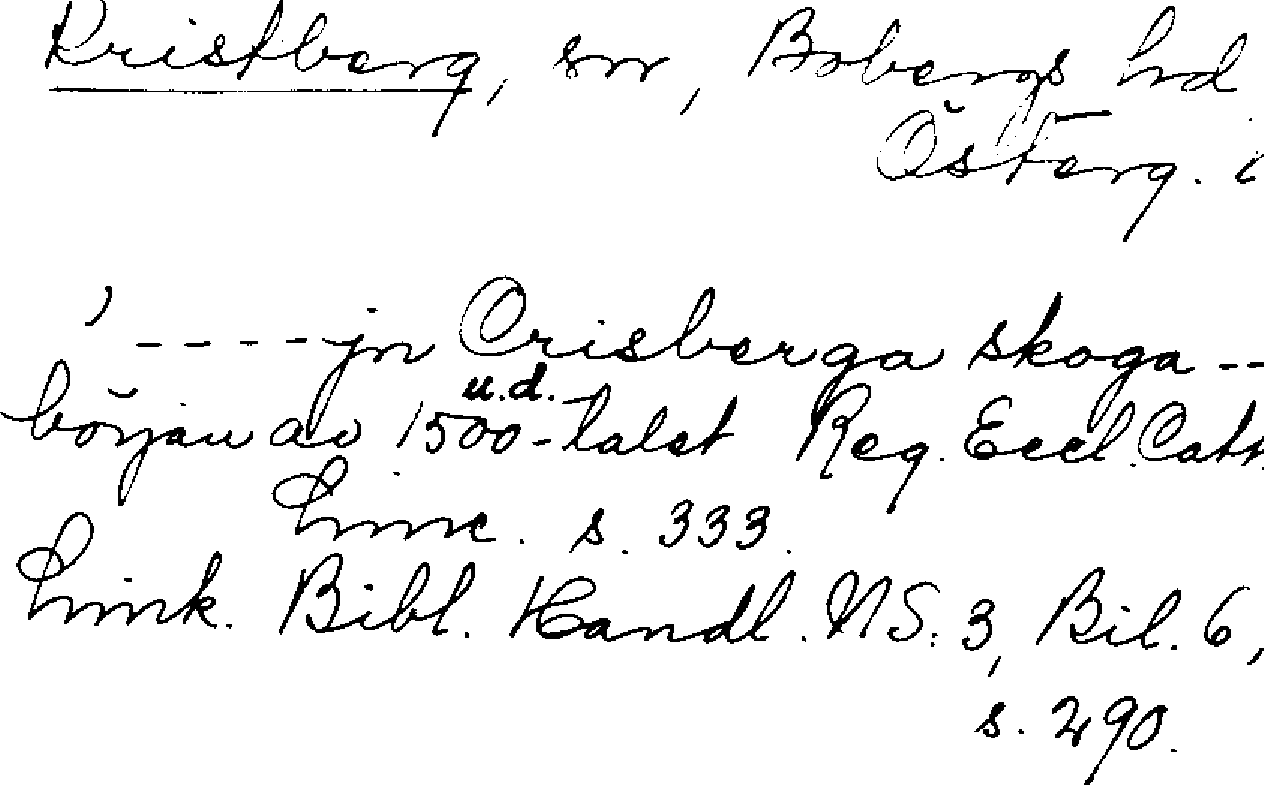 Kristberg, sn, Bobergs hd
Österg.
' - - - - jn Crisberga skoga - -
u.d.
början av 1500-talet Reg. Eccl. Cath.
Linc. s. 333.
Link. Bibl. Handl. NS: 3, Bil. 6,
s. 290.